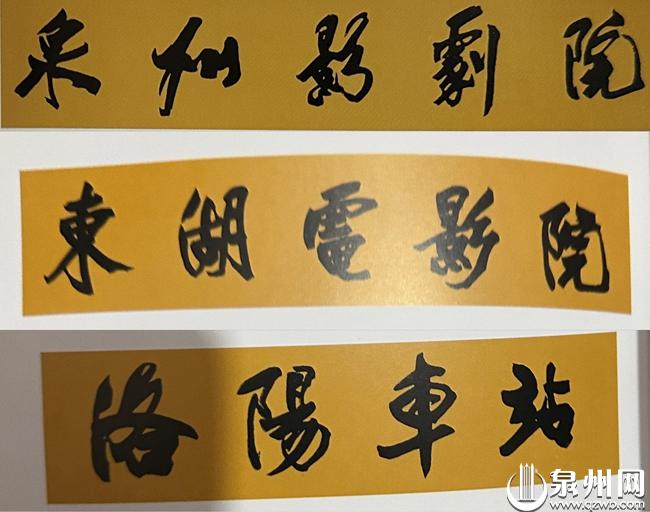 泉州影劇院
東湖電影院
洛陽車站
泉州网
www.qzwb.com